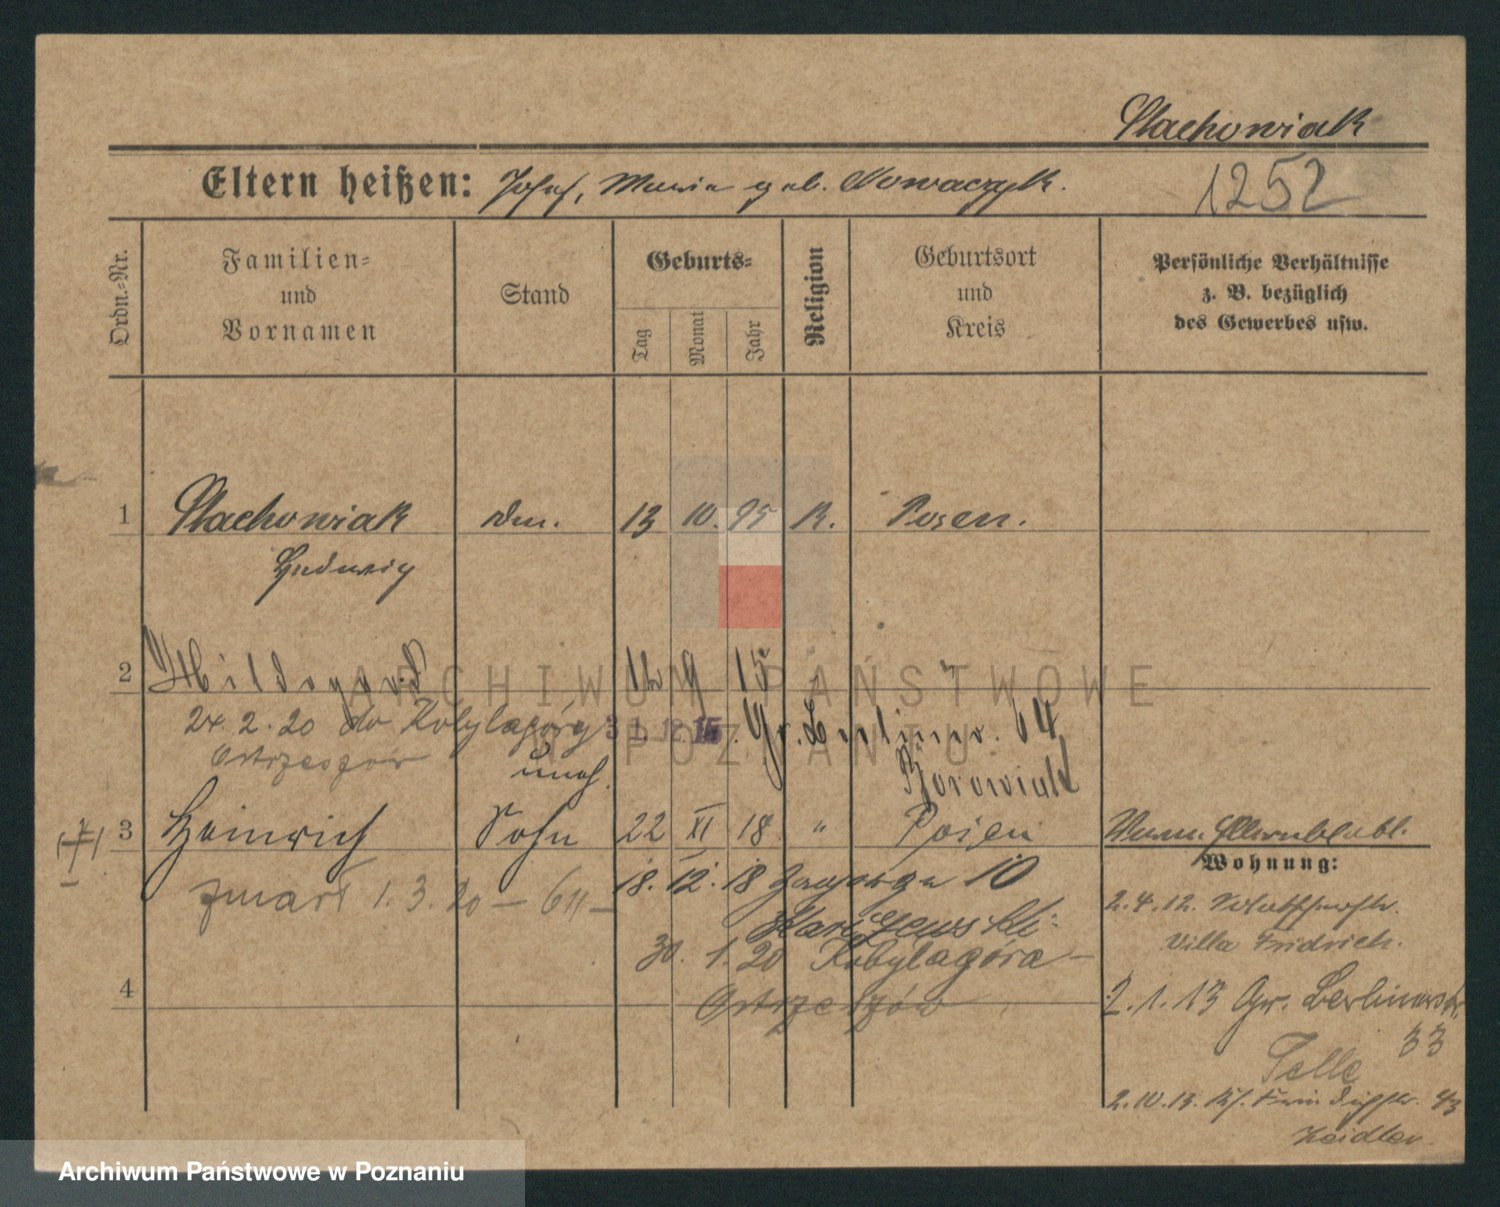 Stachowiak
Eltern heißen: Josef, Maria geb. Nowaczyk.
1252
Ordn.-Nr.
Familien-
und
Vornamen
Stand
Geburts-
Tag
Monat
Jahr
Religion
Geburtsort
und
Kreis
Persönliche Verhältnisse
z. B. bezüglich
des Gewerbes usw.
1 Stachowiak 13 10. 95 K. Posen.
Hedwig
2 Hildegard 9 15 "
24. 2. 20 do Kobylagóry 31. 12. 15. Gr. Berliner. 64
Ostrzeszów
Borowiak
uneh.
3 Heinrich Sohn 22 XI 18 " Posen
zmarł 1. 3. 20
18. 12. 18 10
30. 1. 20 Kobylagóra
Ostrzeszów
4
Wohnung:
2.4.12.
Villa Fridrich.
2.1.13 Gr. Berlinerstr.
33
Telle
2.10.13.
Zeidler.
ARCHIWUM PAŃSTWOWE
W POZNANIU
Archiwum Państwowe w Poznaniu